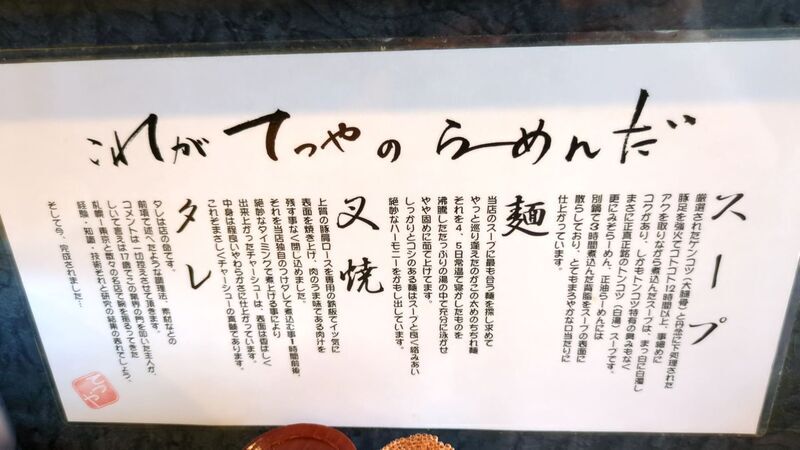 これが てつやの らーめんだ
スープ
厳選されたゲンコツ（大腿骨）と丹念に下処理された
豚足を強火でコトコト12時間以上、事細めに
アクを取りながら煮込んだスープは、まっ白に白濁し
コクがあり、しかもトンコツ特有の臭みもなく
まさに正真正銘のトンコツ（白湯）スープです。
更にみそらーめん、正油らーめんには
別鍋で3時間煮込んだ背脂をスープの表面に
散らしており、とてもまろやかな口当たりに
仕上がっています。
麺
当店のスープに最も合う麺を探し求めて
やっと巡り逢えたのがこの太めのちぢれ麺
それを4、5日常温で寝かしたものを
沸騰したたっぷりの湯の中で充分に泳がせ
やや固めに茹で上げてます。
しっかりとコシのある麺はスープと良く絡みあい
絶妙なハーモニーをかもし出しています。
叉焼
上質の豚肩ロースを専用の鉄板でイッ気に
表面を焼き上げ、肉のうま味である肉汁を
残す事なく閉じ込めました。
それを当店独自のつけダレで煮込む事1時間前後、
絶妙なタイミングで煮上げる事により
出来上がったチャーシューは、表面は香ばしく
中身は程良いやわらかさに仕上がっています。
これぞまさしくチャーシューの真髄であります。
タレ
タレは当店の命です。
前項で述べたような調理法、素材などの
コメントは一切控えさせて頂きます。
しいて言えば17歳でこの業界の門を叩いた主人が、
札幌―東京と数々の名店で腕を振るってきた
経験・知識・技術それと研究の結果の表れでしょう。
そして今、完成されました…
てつや